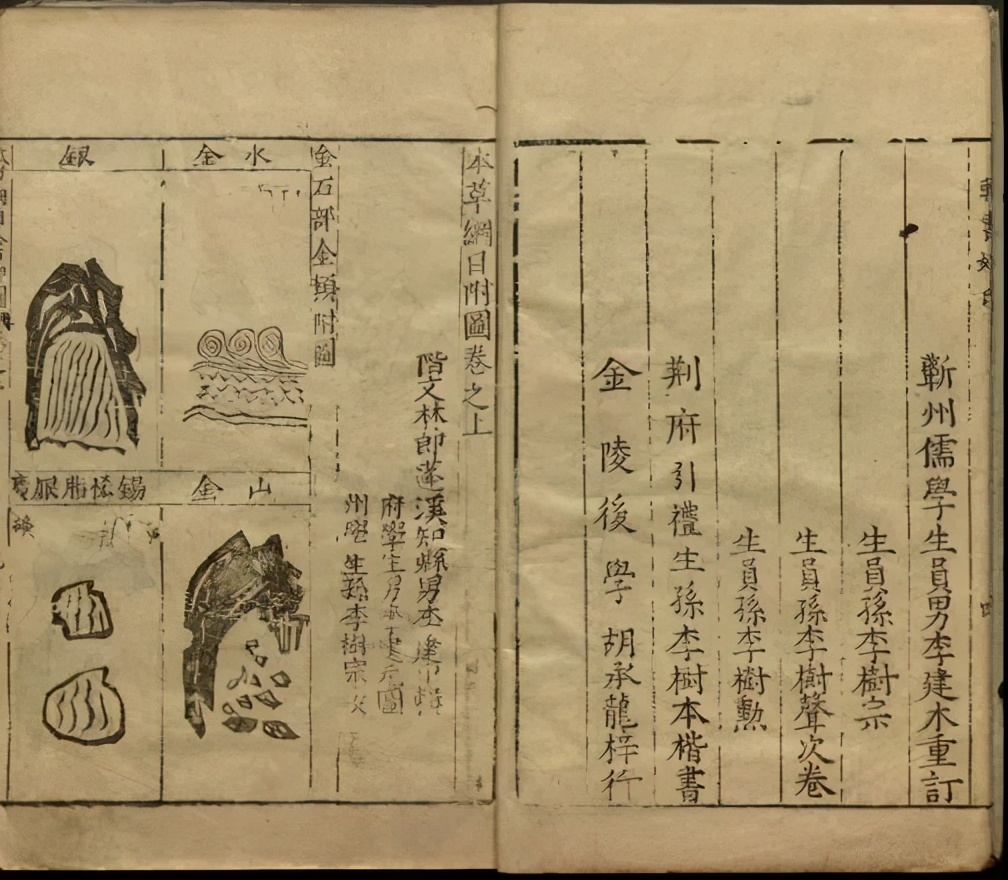 輯書姓氏
四
蘄州儒學生員男李建木重訂
生員孫李樹宗
生員孫李樹聲次卷
生員孫李樹勳
荆府引禮生孫李樹本楷書
金陵後學胡承龍梓行
本草綱目附圖卷之上
階文林郎蓬溪知縣男李建中輯
府學生男李建元圖
州學生孫李樹宗
金石部金類附圖
水金
山金
銀
錫恡脂